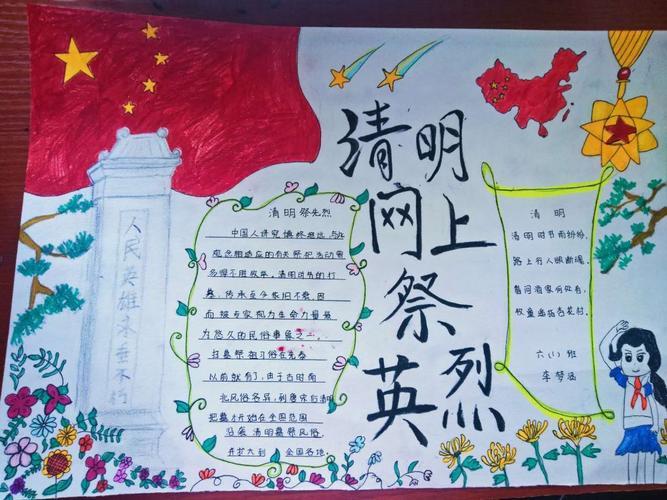 清明
网上
祭
英烈
人民英雄永垂不朽
清明祭先烈
中国人讲究慎终追远,与
观念相适应的有关祭祀活动更
多得不胜枚举,清明时节的
墓,传承至今依旧不衰,因
而被专家视为生命力最
为悠久的民俗事象之一.
扫墓祭祖习俗在先秦
以前就有了,由于古时南
北风俗各异,到唐宋后清明
把墓才开始在全国范围
沿袭清明墓祭风俗.
并扩大到 全国各地
清明
清明时节雨纷纷,
路上行人欲断魂,
借问酒家何处有,
牧童遥指杏花村.
六(1)班
李梦涵